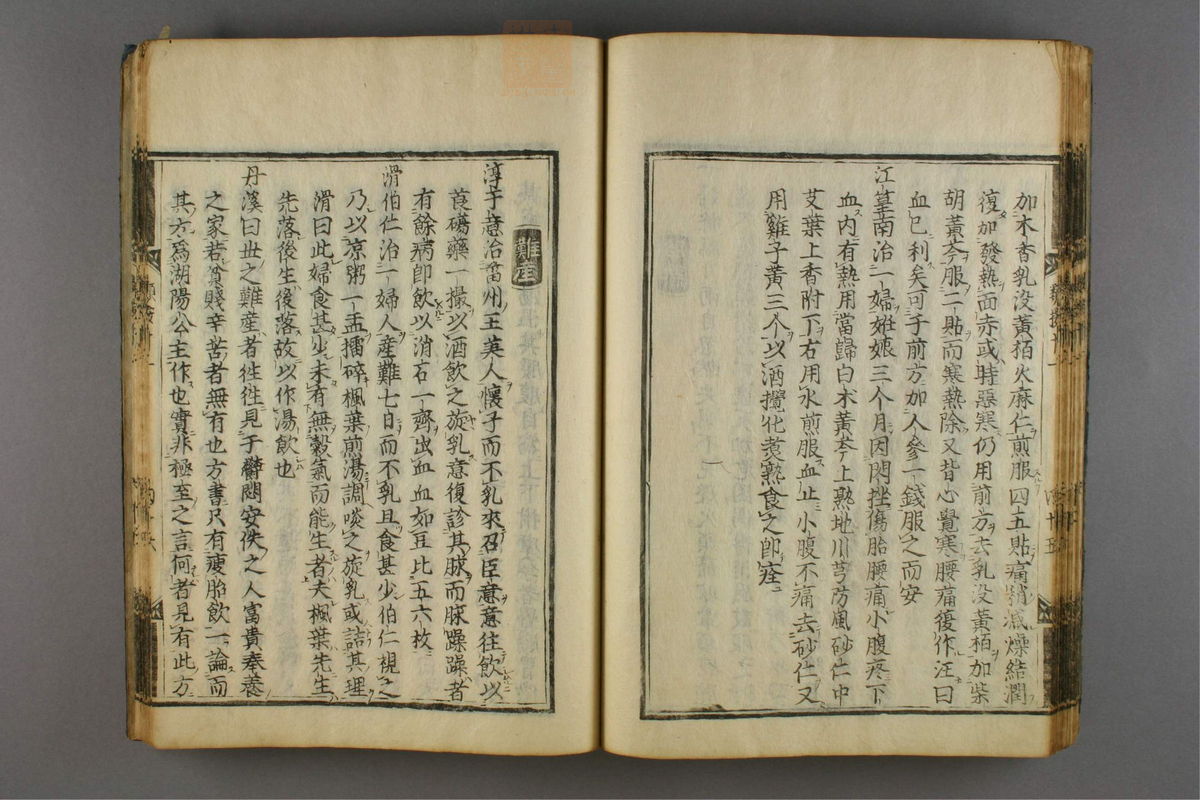 加木香乳没黃栢火麻仁煎服四五貼痛稍减燥結潤
復加發熱而赤或時惡寒仍用前方去乳没黃栢加柴
胡黃芩服二貼而寒熱除又背心覺寒腰痛復作汪曰
血已利矣可于前方加人參一錢服之而安
江篁南治一婦姙娠三个月因閃挫傷胎腰痛小腹疼下
血内有熱用當歸白术黃芩上熟地川芎防風砂仁中
艾葉上香附丁右用水煎服血止小腹不痛去砂仁又
用雞子黃三个以酒攪化煑熟食之即痊
難產
淳于意治菑州王美人懷子而不乳來召臣意意往飲以
莨礍藥一撮以酒飲之旋乳意復診其脉而脉躁躁者
有餘病即飲以消石一齊出血血如豆比五六枚
滑伯仁治一婦人産難七日而不乳且食甚少伯仁視之
乃以凉粥一盂擂碎楓葉煎湯調啖之旋乳或詰其理
滑曰此婦食甚少未有無穀氣而能生者夫楓葉先生
先落後生後落故以作湯飲也
丹溪曰世之難産者徃徃見于鬱悶安佚之人富貴奉養
之家若貧賤辛苦者無有也方書只有瘦胎飲一論而
其方爲湖陽公主作也實非極至之言何者見有此方